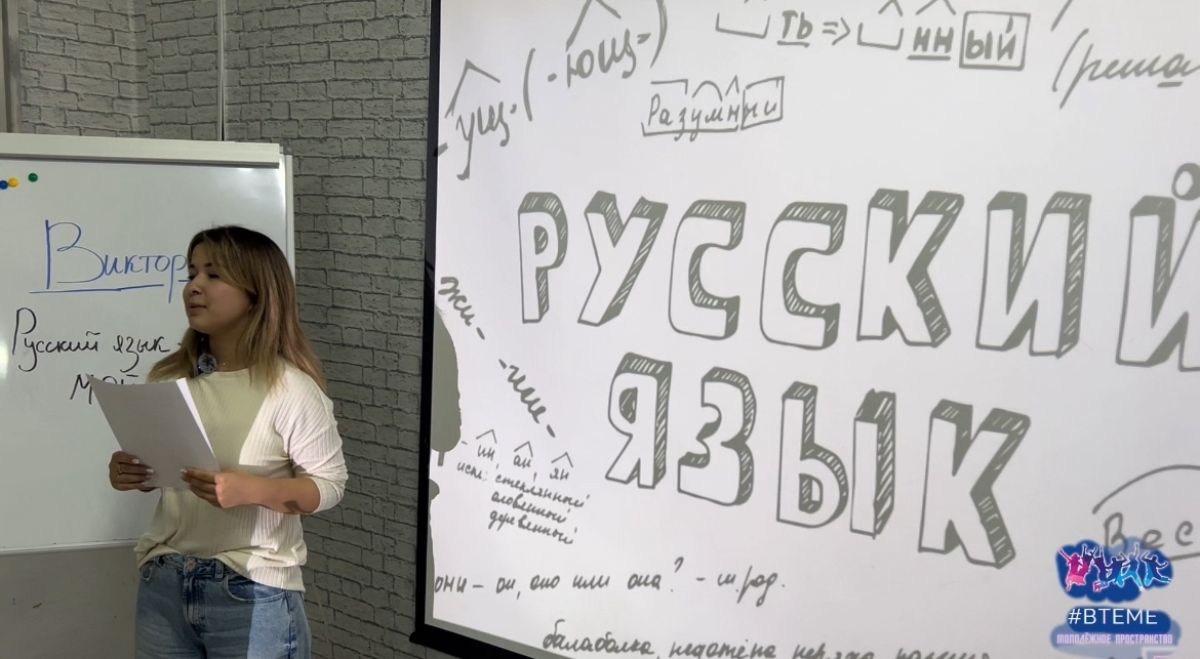 Виктор
Русский язык
-ущ- (-ющ-)
ть => нн ый
(реша
Разумный
РУССКИЙ
ЯЗЫК
жи-
-ши-
-ин, ан, ян
искл: стеклянный
оловянный
деревянный
они - он, оно или она? - м.род.
Вес
балаболка, недотёпа, неряха
#ВТЕМЕ
МОЛОДЁЖНОЕ ПРОСТРАНСТВО